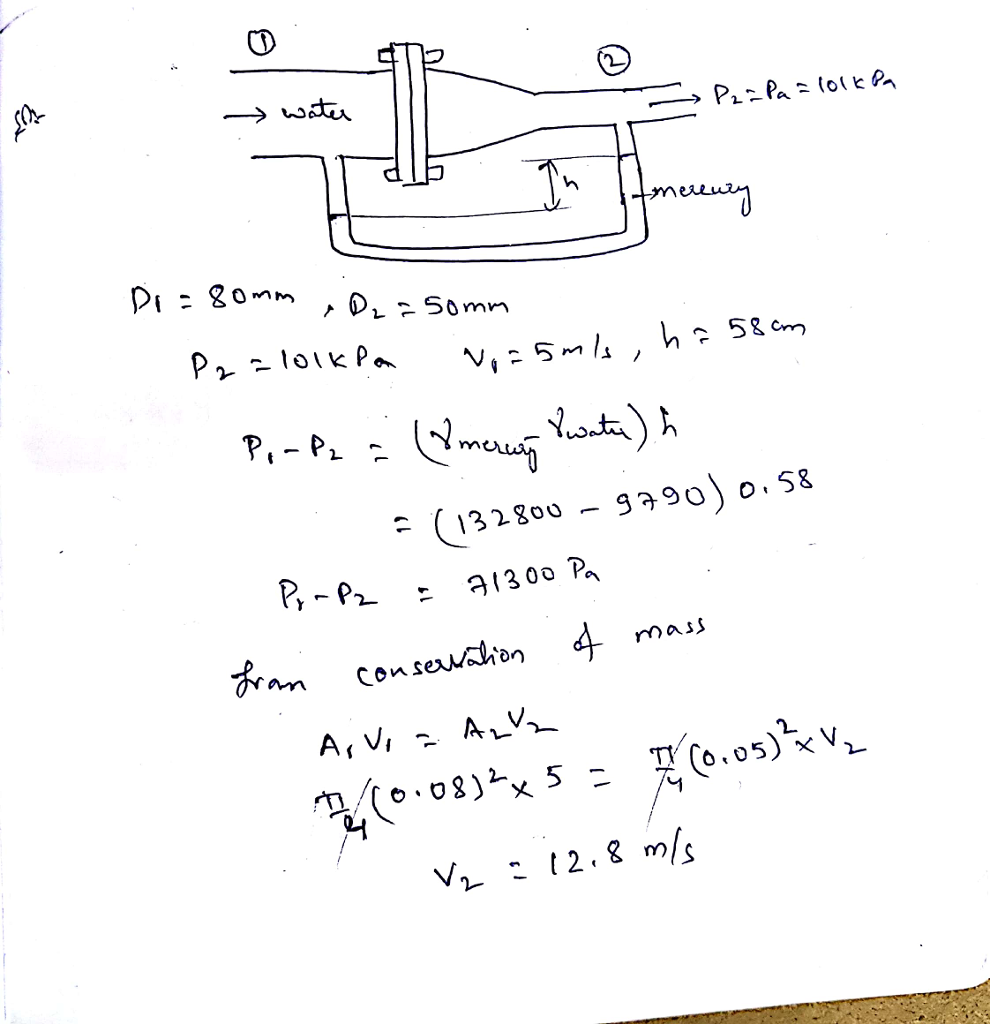 ① ②
→ water → P₂ = Pa = 101 k Pa
h mercury
D₁ = 80mm , D₂ = 50mm
P₂ = 101 k Pa V₁ = 5 m/s , h = 58 cm
P₁ - P₂ = (γmercury - γwater) h
= (132800 - 9790) 0.58
P₁ - P₂ = 71300 Pa
from conservation of mass
A₁ V₁ = A₂ V₂
π/4 (0.08)² × 5 = π/4 (0.05)² × V₂
V₂ = 12.8 m/s